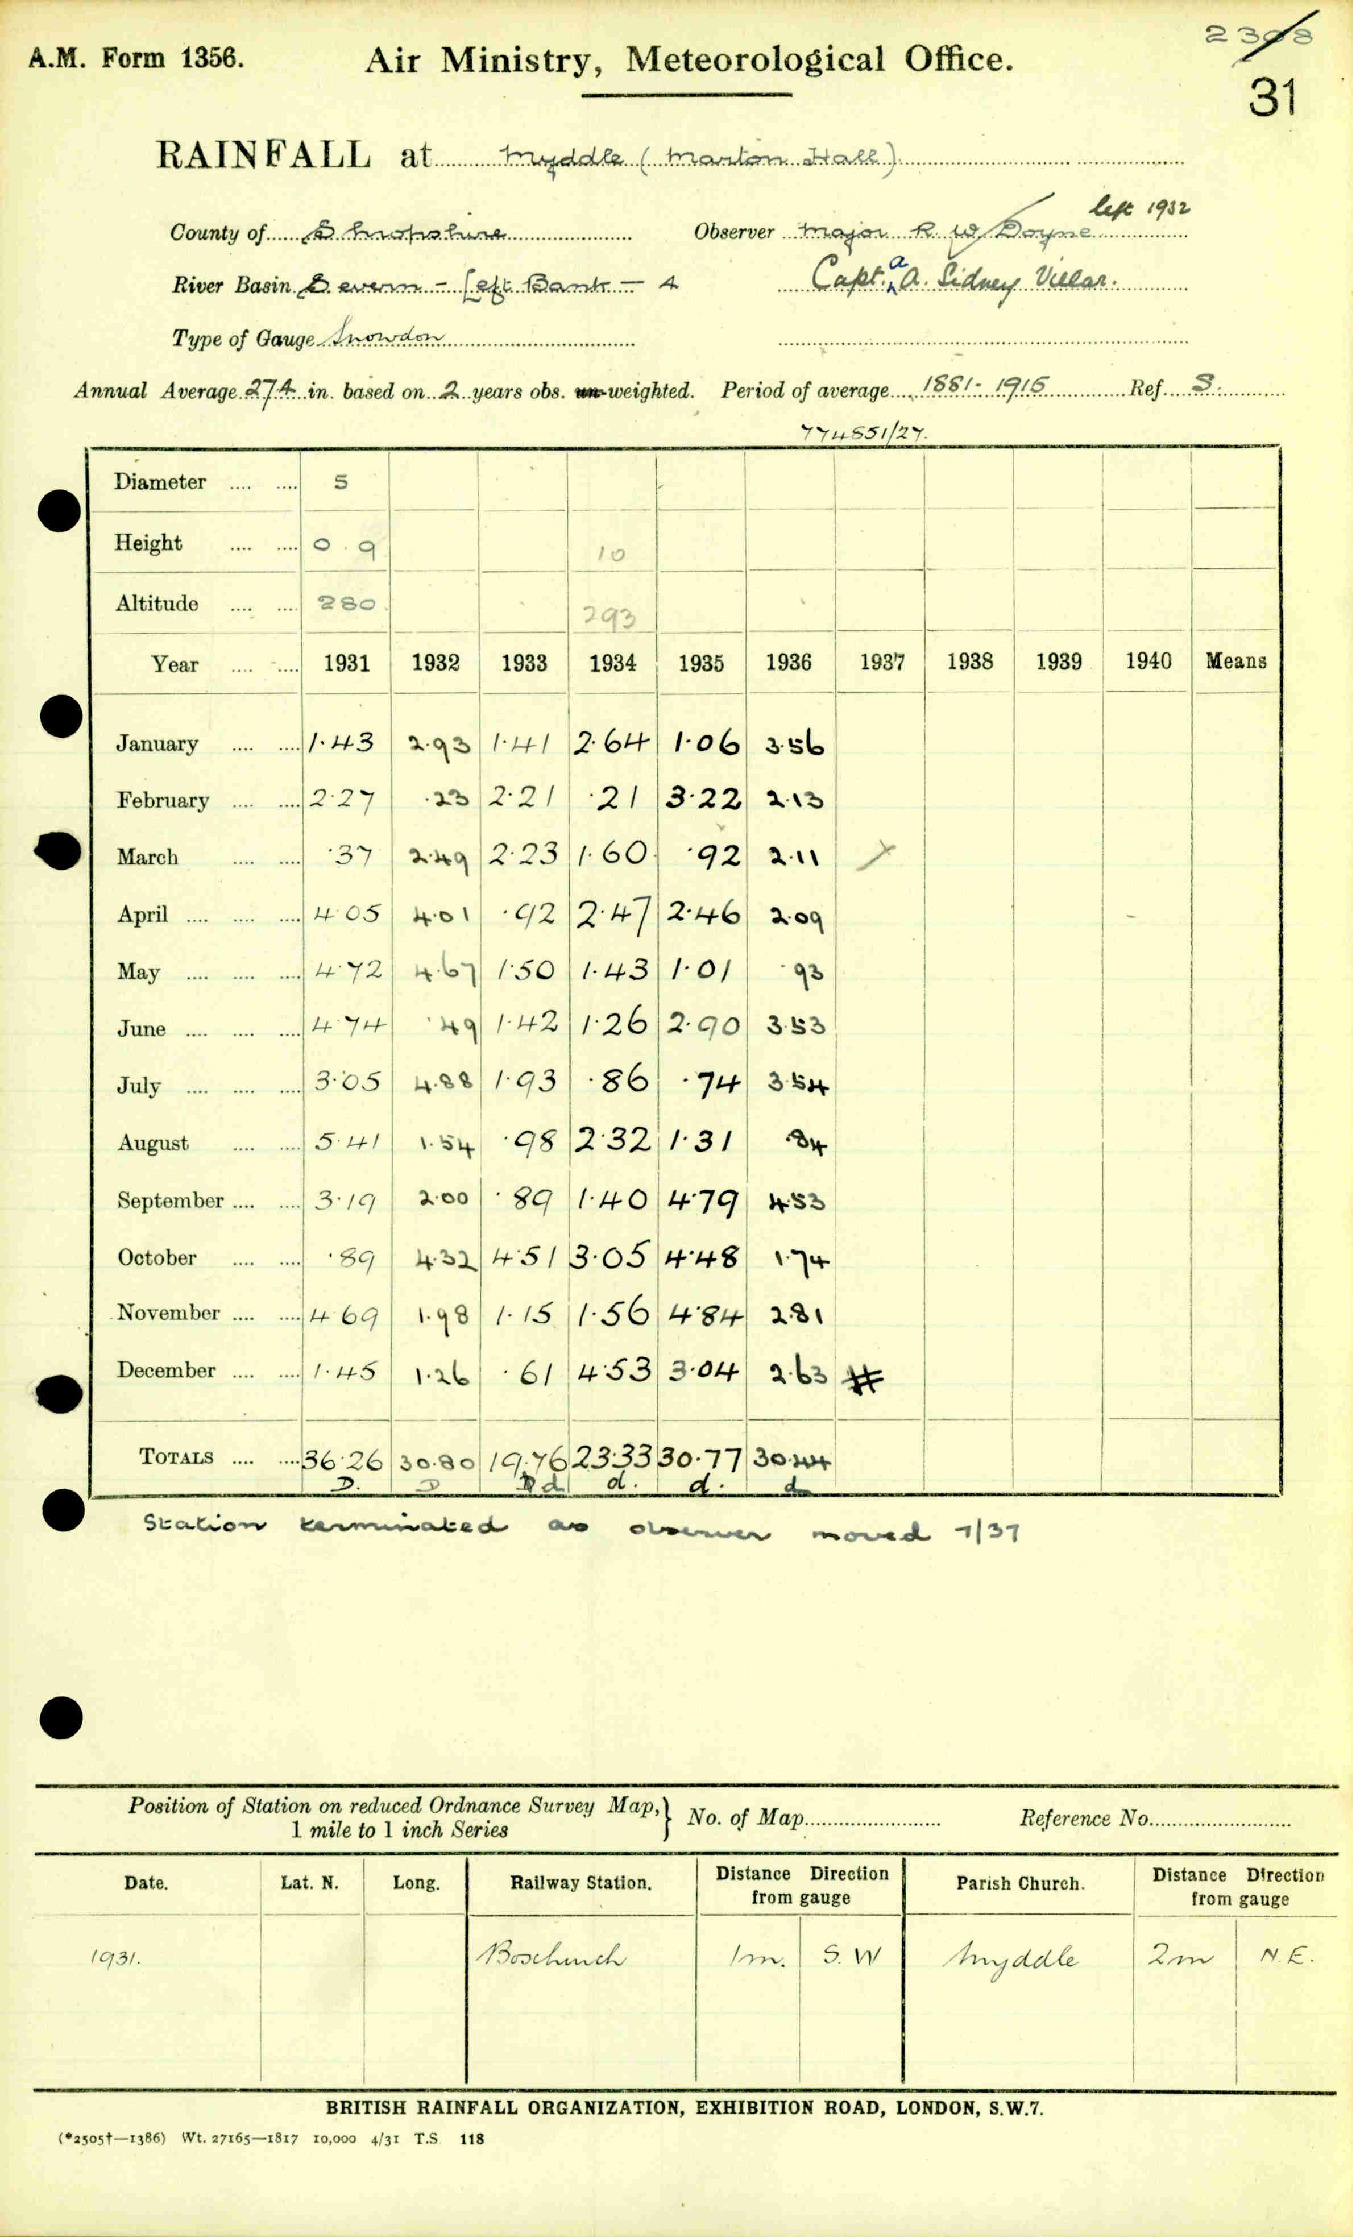 2308
A.M. Form 1356. Air Ministry, Meteorological Office.
31
RAINFALL at Myddle (Marton Hall)
left 1932
County of Shropshire Observer Major R. W. Doyne
River Basin Severn - Left Bank - 4 Capt. a A. Sidney Villar.
Type of Gauge Snowdon
Annual Average 27.4 in. based on 2 years obs. un-weighted. Period of average 1881-1915 Ref. S.
774851/27.
Diameter .... .... 5
Height .... .... 0 9 10
Altitude .... .... 280 293
Year .... .... 1931 1932 1933 1934 1935 1936 1937 1938 1939 1940 Means
January .... .... 1.43 2.93 1.41 2.64 1.06 3.56
February .... .... 2.27 .23 2.21 .21 3.22 2.13
March .... .... .37 2.49 2.23 1.60 .92 2.11
April .... .... .... 4.05 4.01 .92 2.47 2.46 2.09
May .... .... .... 4.72 4.67 1.50 1.43 1.01 .93
June .... .... .... 4.74 .49 1.42 1.26 2.90 3.53
July .... .... .... 3.05 4.88 1.93 .86 .74 3.54
August .... .... 5.41 1.54 .98 2.32 1.31 .84
September .... .... 3.19 2.00 .89 1.40 4.79 4.53
October .... .... .89 4.32 4.51 3.05 4.48 1.74
November .... .... 4.69 1.98 1.15 1.56 4.84 2.81
December .... .... 1.45 1.26 .61 4.53 3.04 2.63 #
TOTALS .... .... 36.26 30.80 19.76 23.33 30.77 30.44
D. D D d d. d. d
Station terminated as observer moved 7/37
Position of Station on reduced Ordnance Survey Map, } No. of Map Reference No.
1 mile to 1 inch Series
Date. Lat. N. Long. Railway Station. Distance Direction from gauge Parish Church. Distance Direction from gauge
1931. Baschurch 1m. S.W Myddle 2m N.E.
BRITISH RAINFALL ORGANIZATION, EXHIBITION ROAD, LONDON, S.W.7.
(*2505†—1386) Wt. 27165—1817 10,000 4/31 T.S. 118